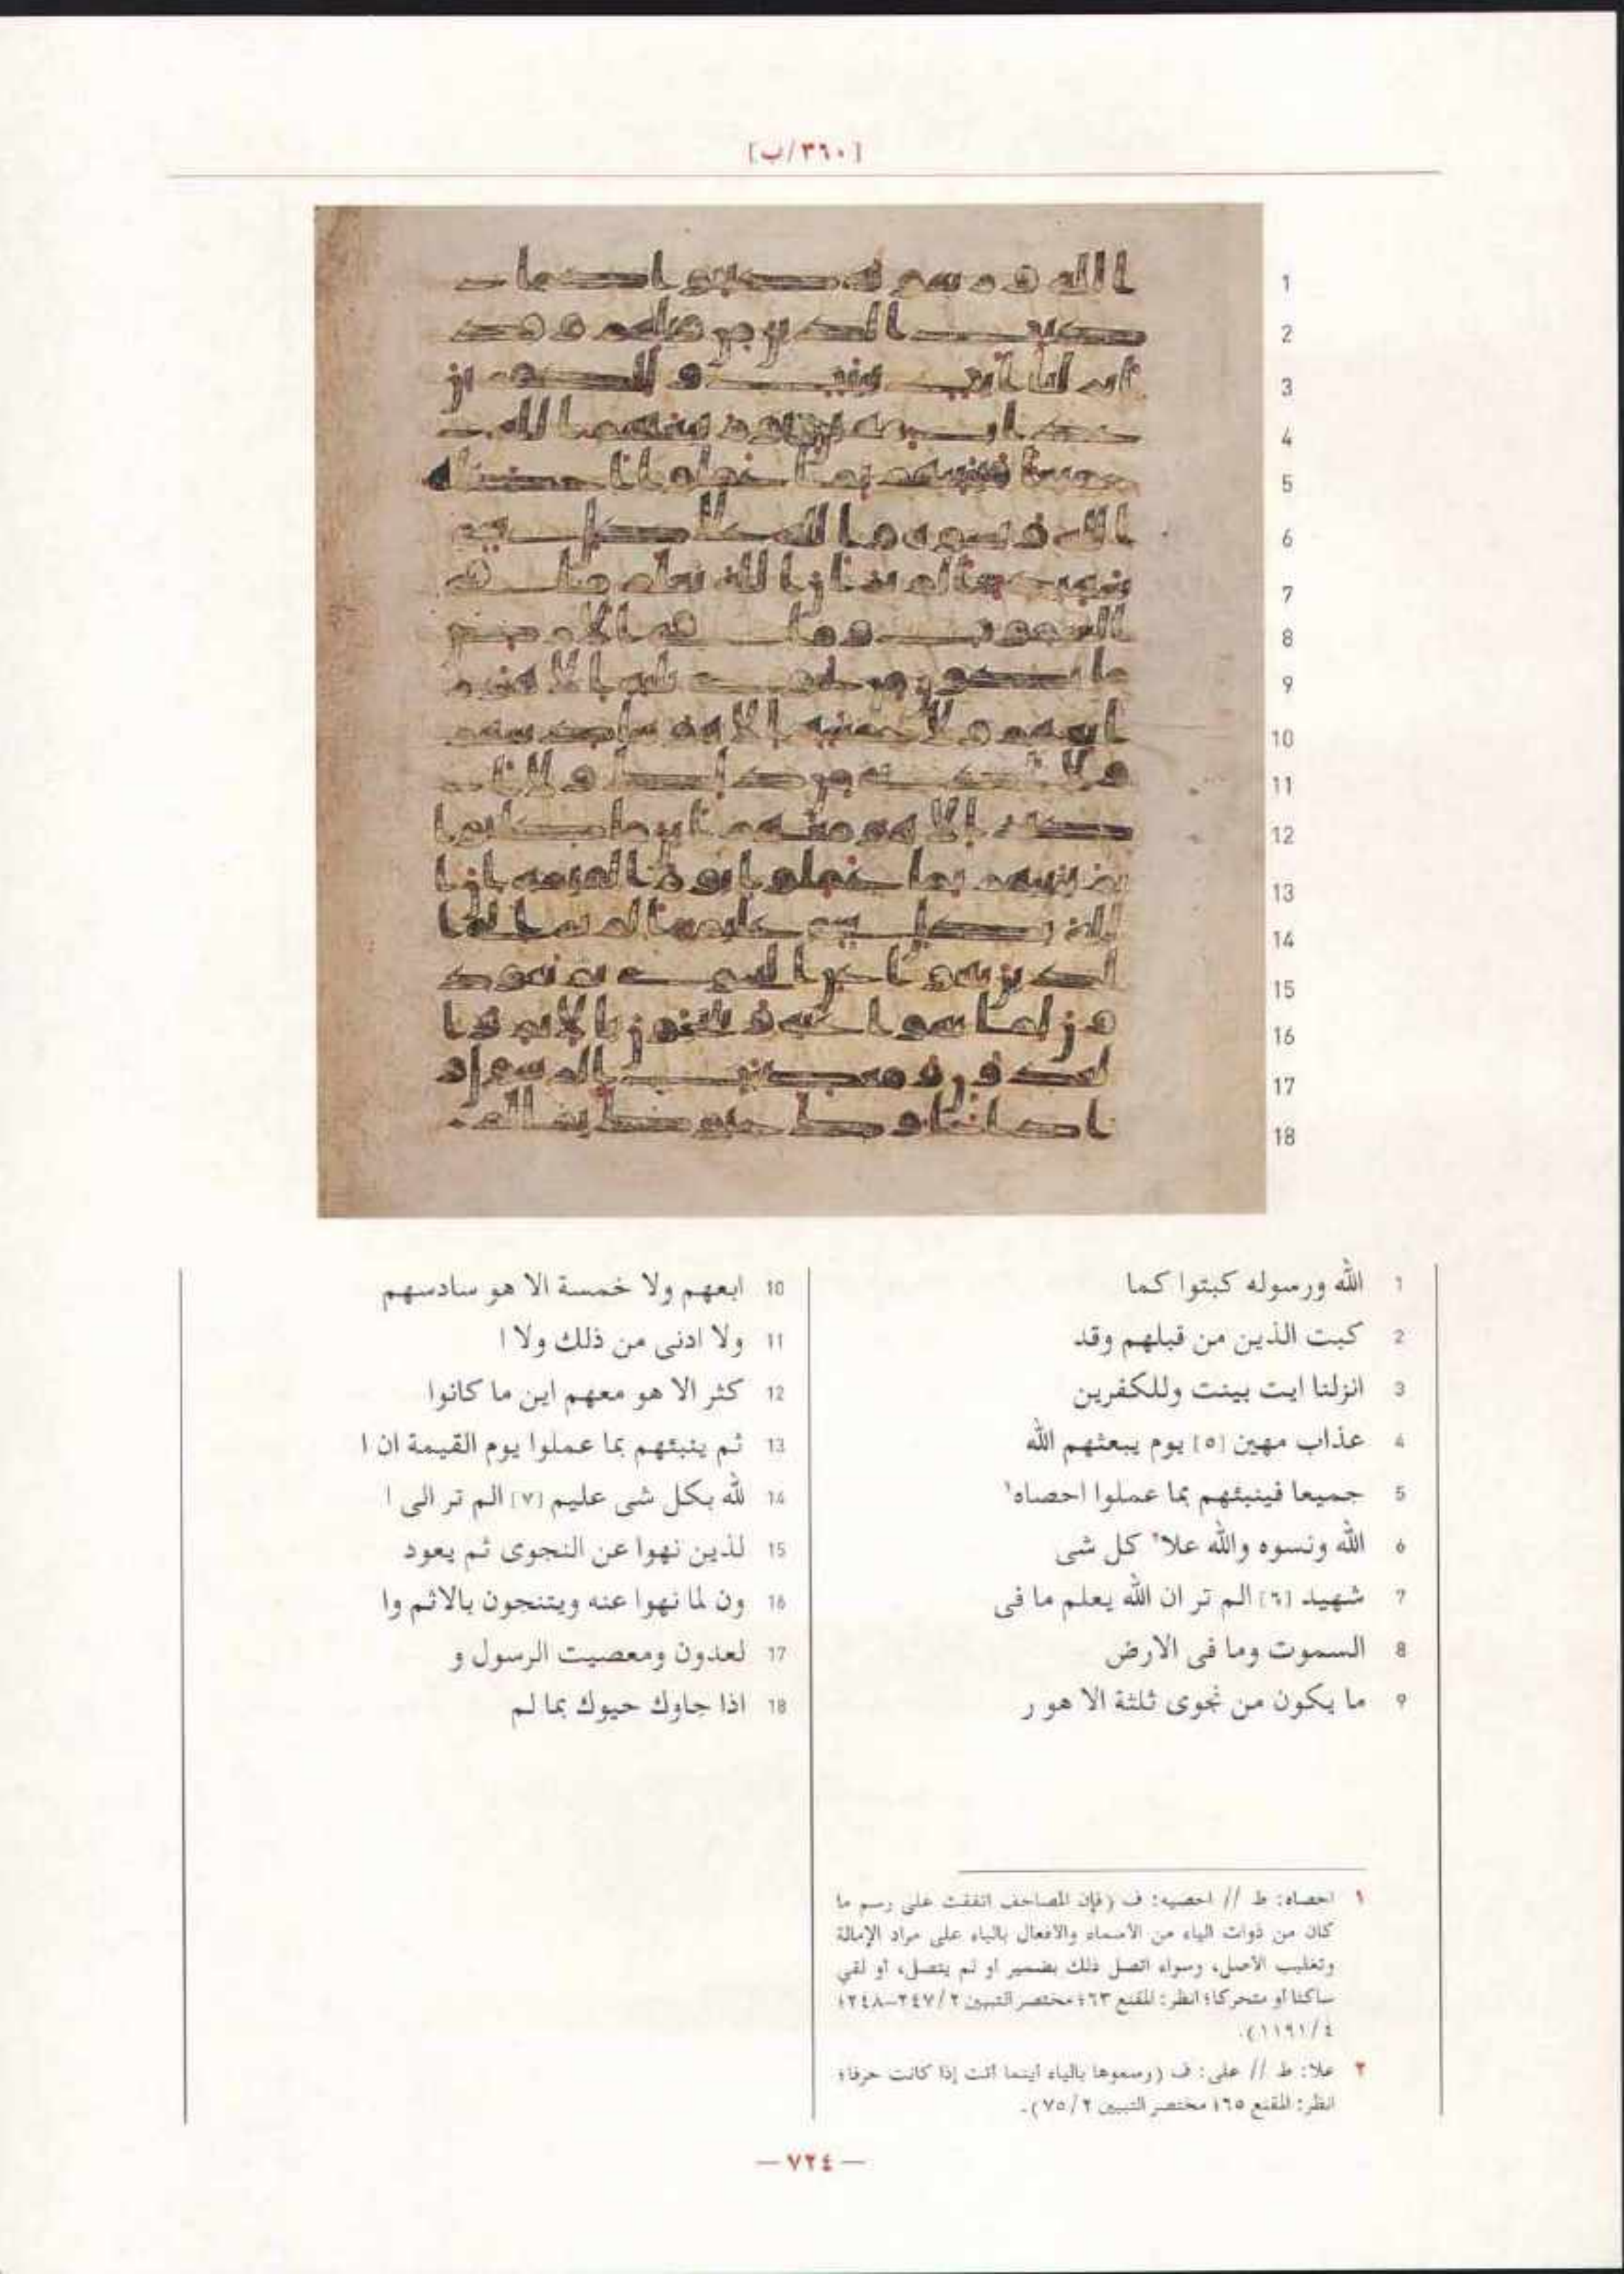 [٣٦٠/ب]
1 الله ورسوله كبتوا كما
2 كبت الذين من قبلهم وقد
3 انزلنا ايت بينت وللكفرين
4 عذاب مهين [٥] يوم يبعثهم الله
5 جميعا فينبئهم بما عملوا احصاه١
6 الله ونسوه والله علا٢ كل شى
7 شهيد [٦] الم تر ان الله يعلم ما فى
8 السموت وما فى الارض
9 ما يكون من نجوى ثلثة الا هو ر
10 ابعهم ولا خمسة الا هو سادسهم
11 ولا ادنى من ذلك ولا ا
12 كثر الا هو معهم اين ما كانوا
13 ثم ينبئهم بما عملوا يوم القيمة ان ا
14 لله بكل شى عليم [٧] الم تر الى ا
15 لذين نهوا عن النجوى ثم يعود
16 ون لما نهوا عنه ويتنجون بالاثم وا
17 لعدون ومعصيت الرسول و
18 اذا جاوك حيوك بما لم
١ احصاه: ط // احصيه: ف (فإن المصاحف اتفقت على رسم ما
كان من ذوات الياء من الأسماء والأفعال بالياء على مراد الإمالة
وتغليب الأصل، وسواء اتصل ذلك بضمير أو لم يتصل، أو لقي
ساكنا أو متحركا؛ انظر: المقنع ٦٣؛ مختصر التبيين ٢/٢٤٧-٢٤٨؛
٤/١١٩١).
٢ علا: ط // على: ف (رسموها بالياء أينما أتت إذا كانت حرفا؛
انظر: المقنع ٦٥؛ مختصر التبيين ٢/٧٥).
— ٧٢٤ —